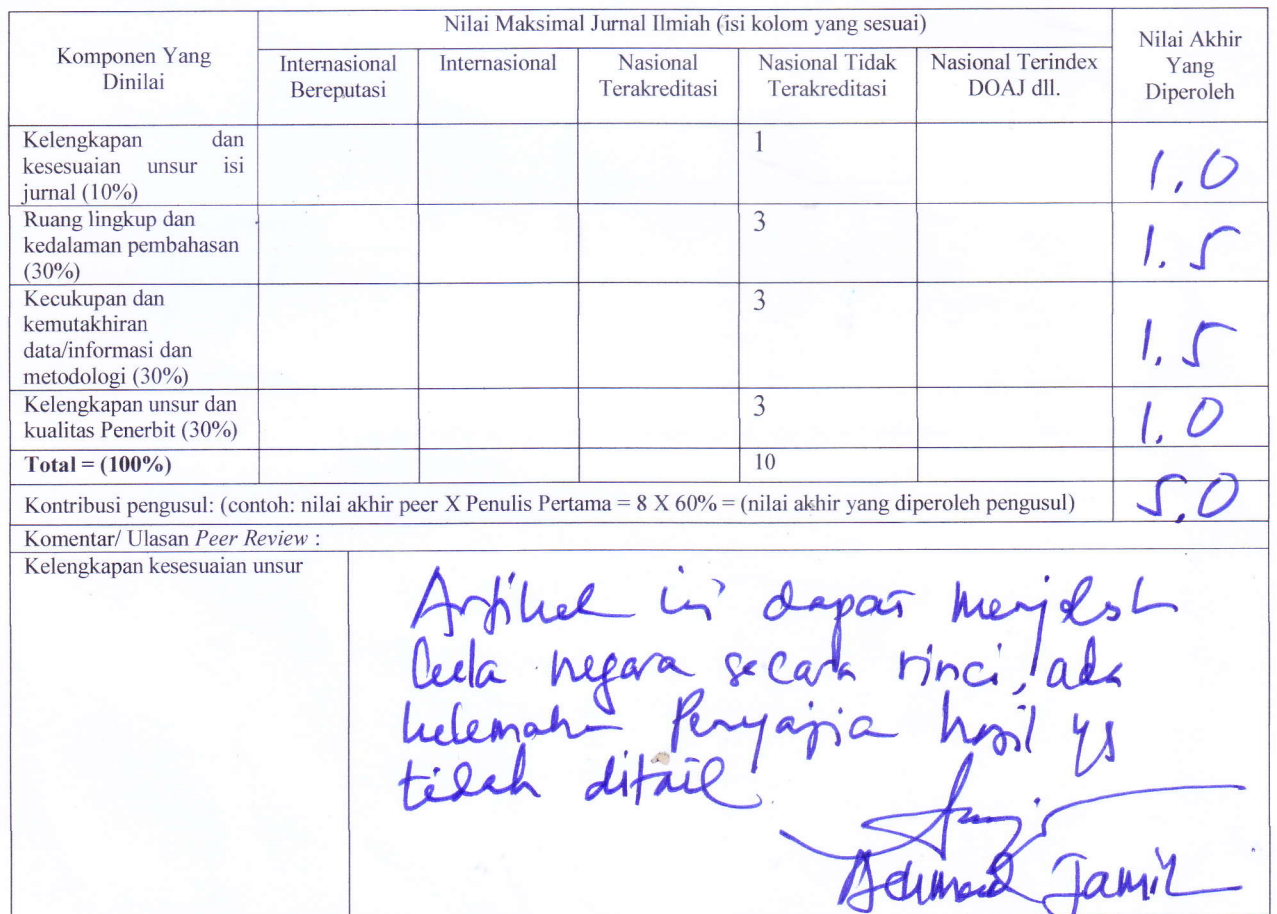 Komponen Yang Dinilai
Nilai Maksimal Jurnal Ilmiah (isi kolom yang sesuai)
Nilai Akhir Yang Diperoleh
Internasional Bereputasi
Internasional
Nasional Terakreditasi
Nasional Tidak Terakreditasi
Nasional Terindex DOAJ dll.
Kelengkapan dan
kesesuaian unsur isi
jurnal (10%)
1
1,0
Ruang lingkup dan
kedalaman pembahasan
(30%)
3
1.5
Kecukupan dan
kemutakhiran
data/informasi dan
metodologi (30%)
3
1.5
Kelengkapan unsur dan
kualitas Penerbit (30%)
3
1,0
Total = (100%)
10
Kontribusi pengusul: (contoh: nilai akhir peer X Penulis Pertama = 8 X 60% = (nilai akhir yang diperoleh pengusul)
5,0
Komentar/ Ulasan Peer Review :
Kelengkapan kesesuaian unsur
Artikel ini dapat
negara secara rinci, ada
hasil yg
ditail
Jamil